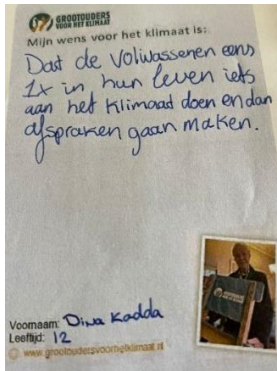 GROOTOUDERS
VOOR HET KLIMAAT
Mijn wens voor het klimaat is:
Dat de Volwassenen eens
1x in hun leven iets
aan het klimaat doen en dan
afspraken gaan maken.
Voornaam: Dina Kadda
Leeftijd: 12
www.grootoudersvoorhetklimaat.nl